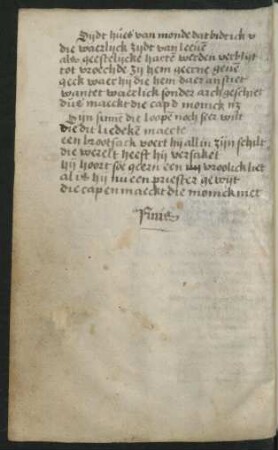 Sijdt hues van monde dat bid ick v
die waerlijck zijdt van leeue
alle geestelijcke harte werden verblijt
tot vroechde zij hem geerne geue
geck waer hij die hem daer an stiet
wantet waerlick sonder arch geschiet
dus maeckt die cap d monick nz
Sijn sinne die loape noch seer wilt
die dit liedeke maecte
een brootsack voert hij al in zijn schilt
die werelt heeft hij versaket
hij hoort soe geern een vroolick liet
al is hij nu een priester gewijt
die capen maeckt die monick niet
Finis